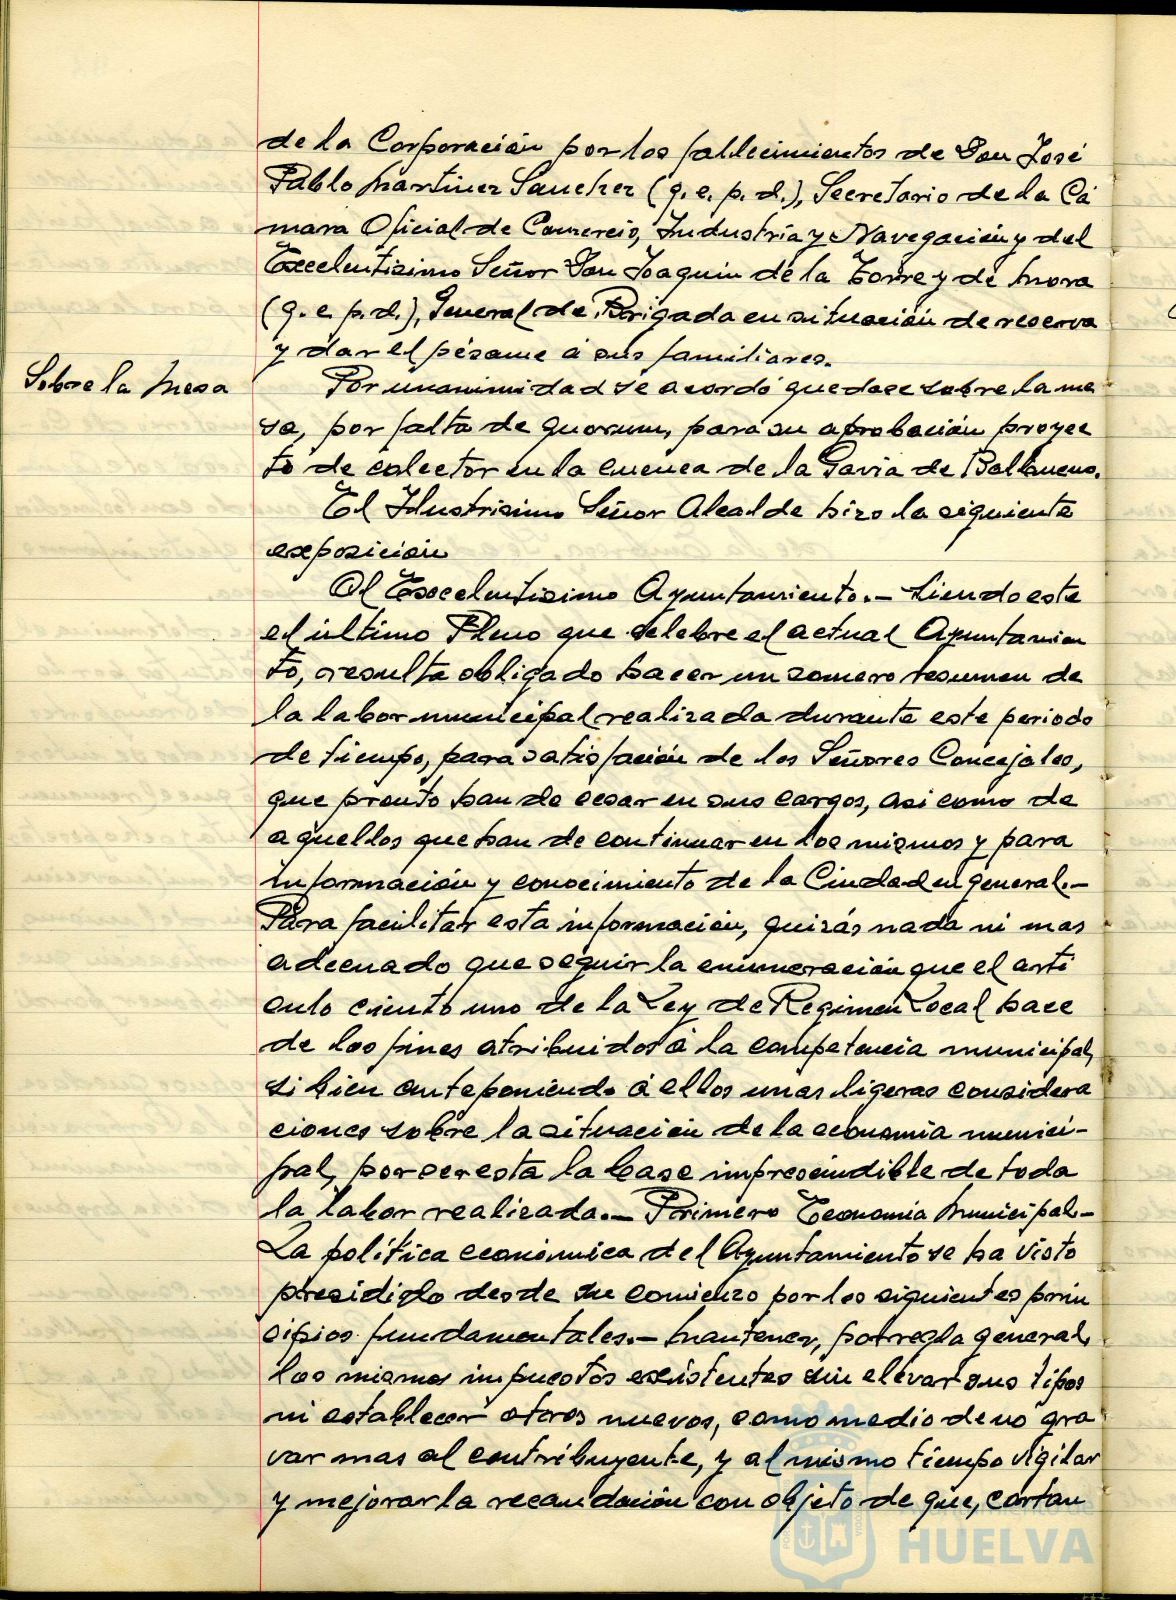 de la Corporación por los fallecimientos de Don José
Pablo Martinez Sanchez (q. e. p. d.), Secretario de la Cá
mara Oficial de Comercio, Industria y Navegación y del
Excelentisimo Señor Don Joaquin de la Torre y de Mora
(q. e. p. d.), General de Brigada en situación de reserva
y dar el pésame á sus familiares.
Sobre la Mesa
Por unanimidad se acordó quedase sobre la me
sa, por falta de quorum, para su aprobación proyec
to de colector en la cuenca de la Gavia de
El Ilustrisimo Señor Alcalde hizo la siguiente
exposición
Al Excelentisimo Ayuntamiento.- Siendo este
el último Pleno que celebre el actual Ayuntamien
to, resulta obligado hacer un somero resumen de
la labor municipal realizada durante este periodo
de tiempo, para satisfación de los Señores Concejales,
que pronto han de cesar en sus cargos, asi como de
aquellos que han de continuar en los mismos y para
información y conocimiento de la Ciudad en general.-
Para facilitar esta información, quizás nada ni mas
adecuado que seguir la enumeración que el arti
culo ciento uno de la Ley de Regimen Local hace
de los fines atribuidos á la competencia municipal,
si bien anteponiendo á ellos unas ligeras considera
ciones sobre la situación de la economia munici-
pal, por ser esta la base imprescindible de toda
la labor realizada.- Primero Economia Municipal.-
La política económica del Ayuntamiento se ha visto
presidido desde su comienzo por los siguientes prin
cipios fundamentales.- Mantener, por regla general,
los mismos impuestos existentes sin elevar sus tipos
ni establecer otros nuevos, como medio de no gra
var mas al contribuyente, y al mismo tiempo vigilar
y mejorar la recaudación con objeto de que, cortan
Ayuntamiento de
HUELVA